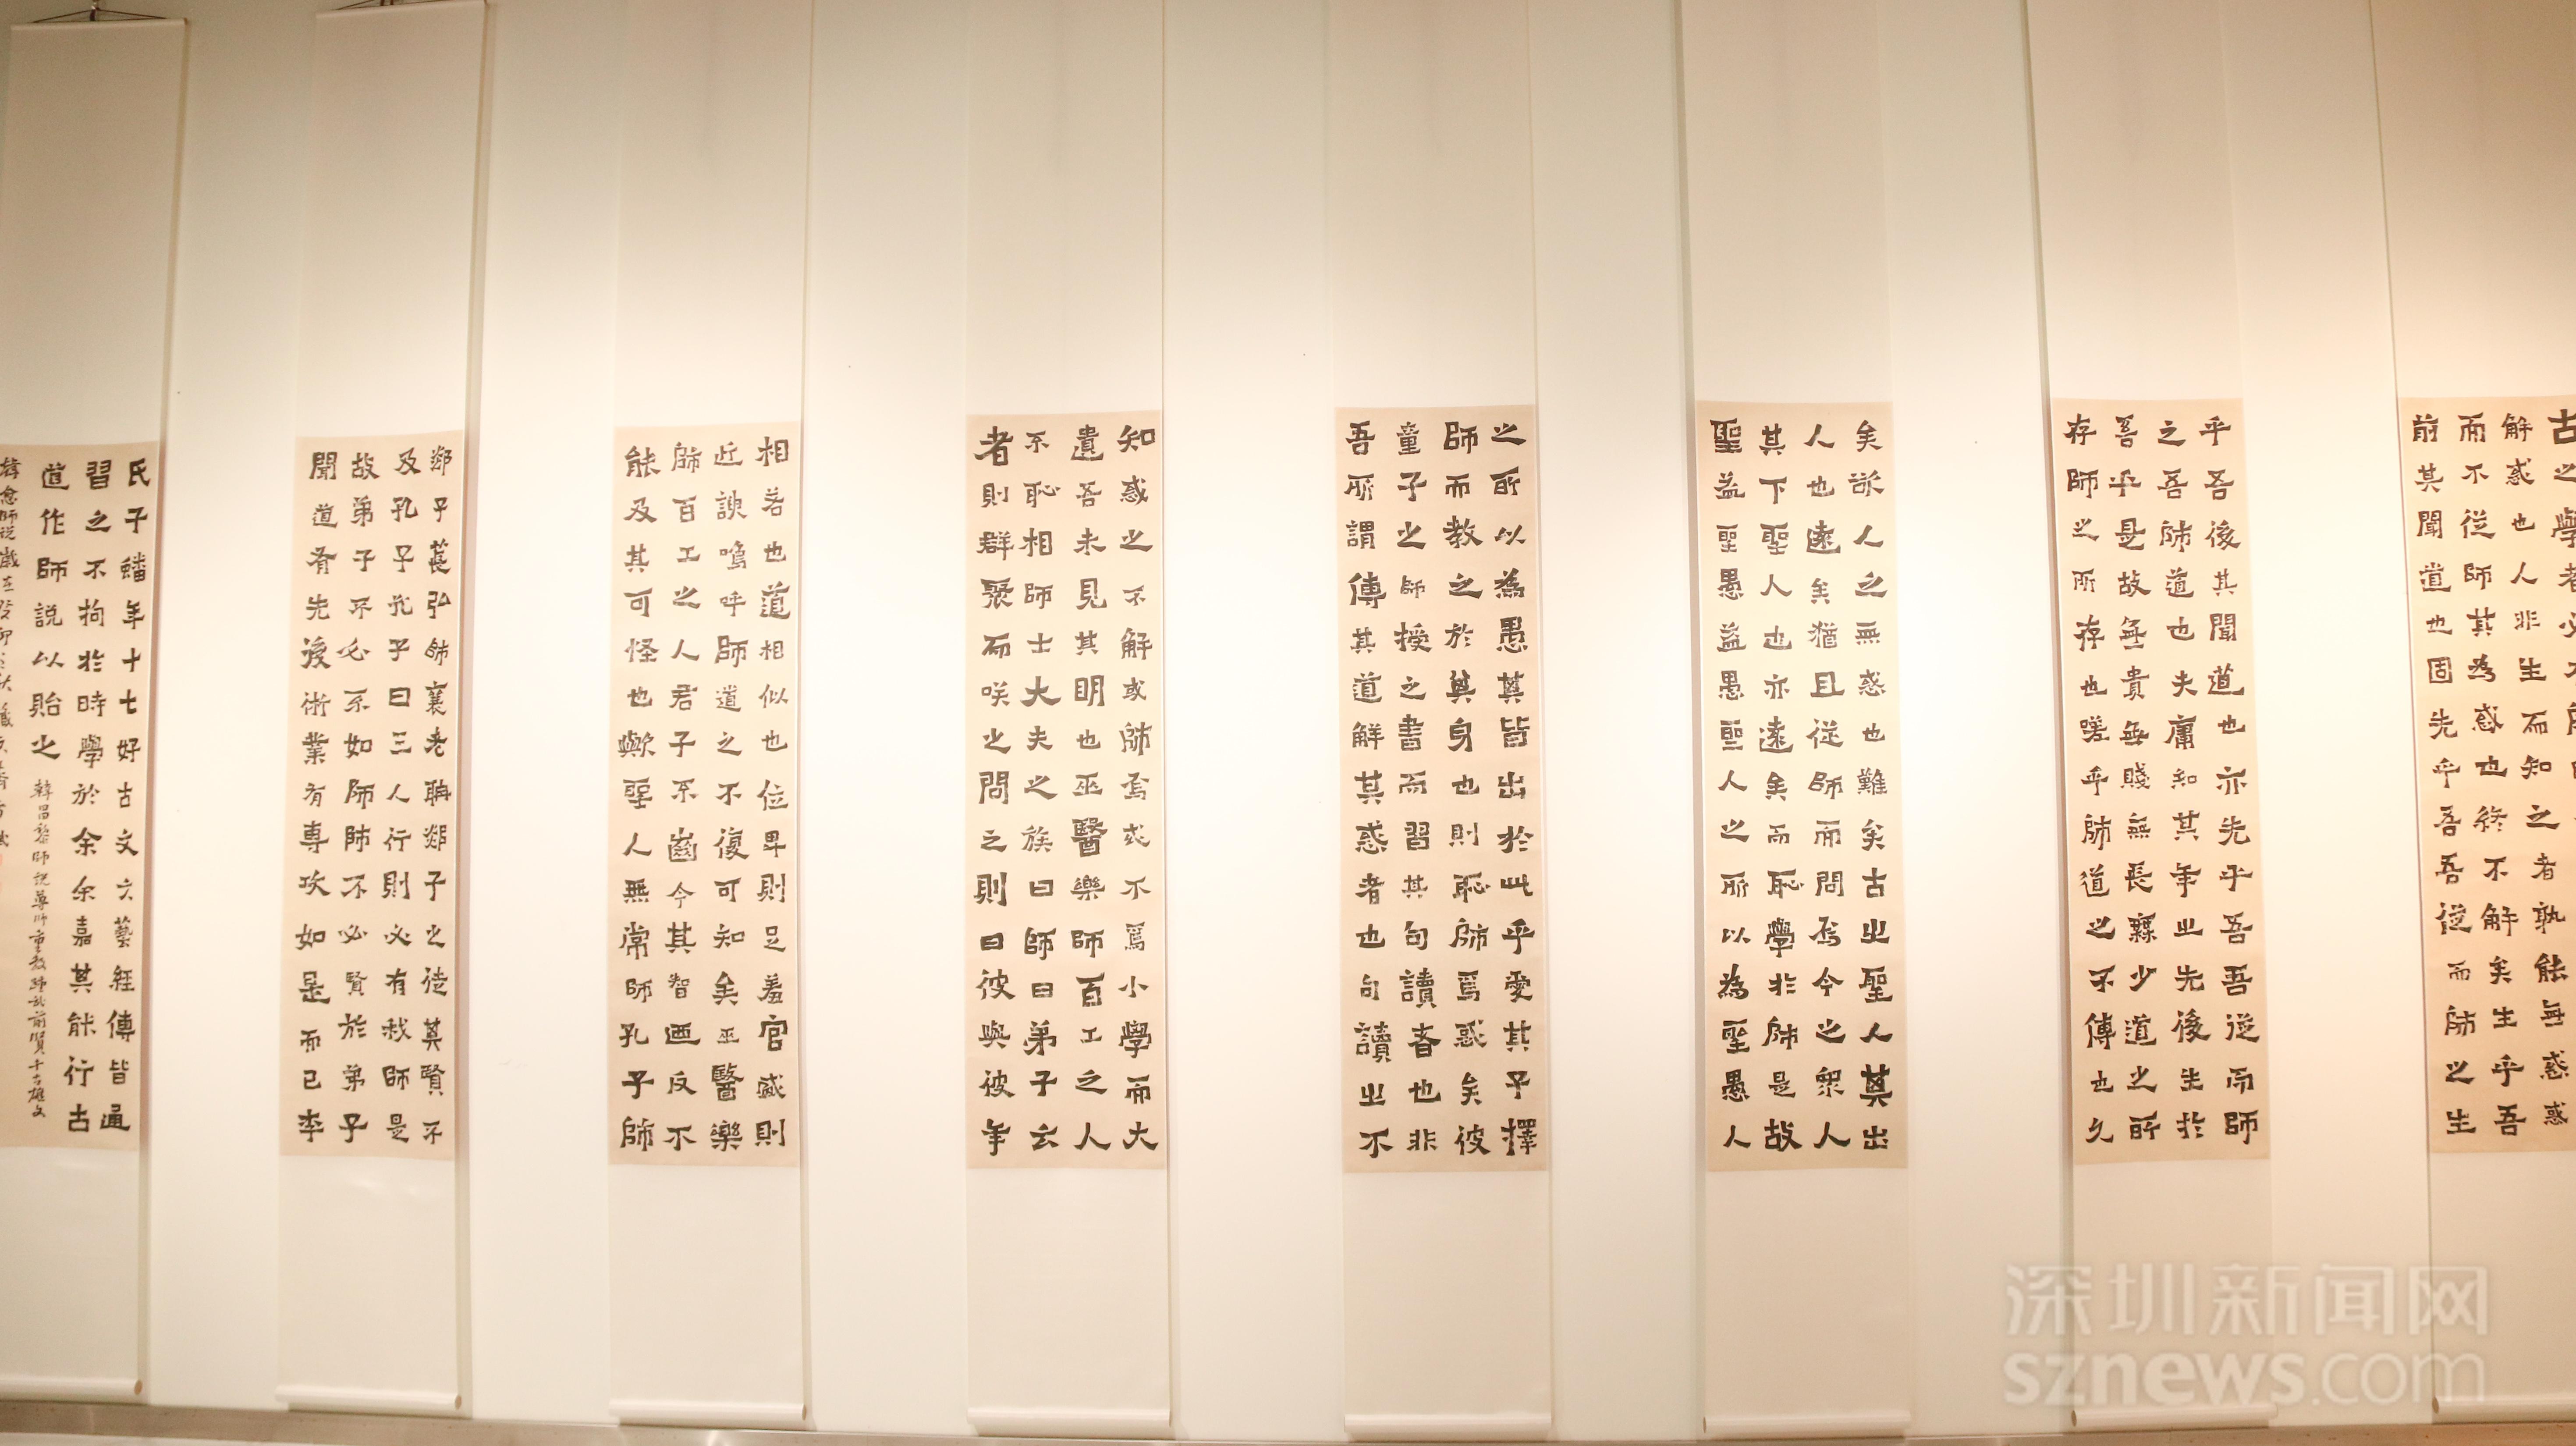 古之學者
解惑也人非生而知之者孰能無惑惑
而不從師其為惑也終不解矣生乎吾
前其聞道也固先乎吾吾從而師之生
乎吾後其聞道也亦先乎吾吾從而師
之吾師道也夫庸知其年之先後生於
吾乎是故無貴無賤無長無少道之所
存師之所存也嗟乎師道之不傳也久
矣欲人之無惑也難矣古之聖人其出
人也遠矣猶且從師而問焉今之眾人
其下聖人也亦遠矣而恥學於師是故
聖益聖愚益愚聖人之所以為聖愚人
之所以為愚其皆出於此乎愛其子擇
師而教之於其身也則恥師焉惑矣彼
童子之師授之書而習其句讀者也非
吾所謂傳其道解其惑者也句讀之不
知惑之不解或師焉或不焉小學而大
遺吾未見其明也巫醫樂師百工之人
不恥相師士大夫之族曰師曰弟子云
者則群聚而咲之問之則曰彼與彼年
相若也道相似也位卑則足羞官盛則
近諛嗚呼師道之不復可知矣巫醫樂
師百工之人君子不齒今其智迺反不
能及其可怪也歟聖人無常師孔子師
郯子萇弘師襄老聃郯子之徒其賢不
及孔子孔子曰三人行則必有我師是
故弟子不必不如師師不必賢於弟子
聞道有先後術業有專攻如是而已李
氏子蟠年十七好古文六藝經傳皆通
習之不拘於時學於余余嘉其能行古
道作師說以貽之 韓昌黎師說尊師重教 前賢千古雄文
韓愈師說歲在癸卯
深圳新闻网
sznews.com